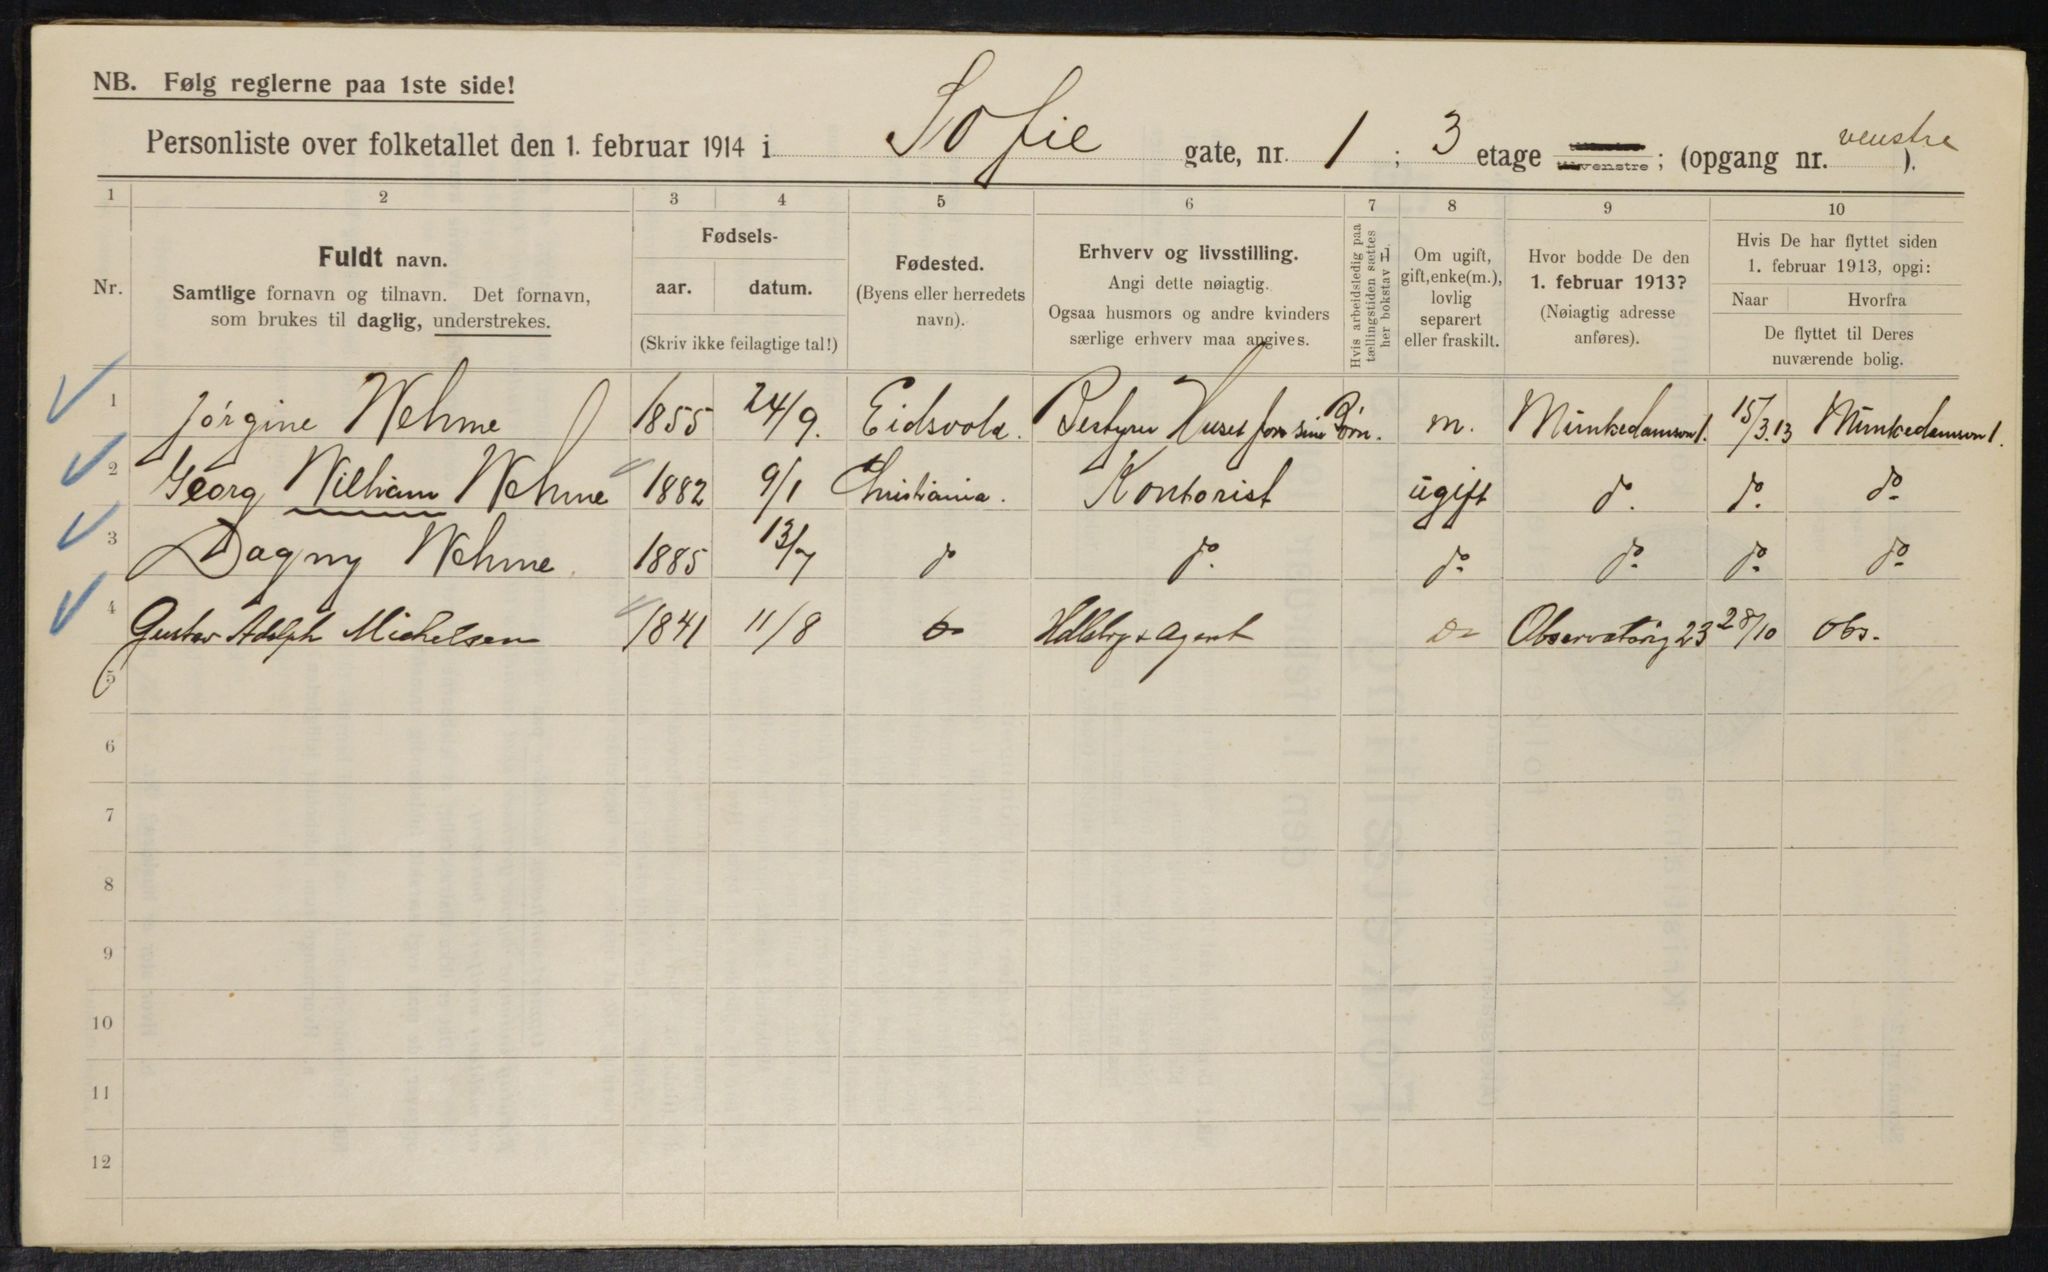 NB. Følg reglerne paa 1ste side!
Personliste over folketallet den 1. februar 1914 i Sofie gate, nr. 1 ; 3 etage tilvenstre ; (opgang nr. venstre ).
1 2 3 4 5 6 7 8 9 10
Nr.
Fuldt navn.
Samtlige fornavn og tilnavn. Det fornavn,
som brukes til daglig, understrekes.
Fødsels-
aar. datum.
(Skriv ikke feilagtige tal!)
Fødested.
(Byens eller herredets
navn).
Erhverv og livsstilling.
Angi dette nøiagtig.
Ogsaa husmors og andre kvinders
særlige erhverv maa angives.
Hvis arbeidsledig paa
tællingstiden sættes
her bokstav H.
Om ugift,
gift, enke(m.),
lovlig
separert
eller fraskilt.
Hvor bodde De den
1. februar 1913?
(Nøiagtig adresse
anføres).
Hvis De har flyttet siden
1. februar 1913, opgi:
Naar Hvorfra
De flyttet til Deres
nuværende bolig.
1 Jørgine Wehme 1855 24/9. Eidsvold. Bestyrer Huset for sine Børn. m. Munkedamsv 1. 15/3.13 Munkedamsv 1.
2 Georg William Wehme 1882 9/1 Christiania. Kontorist ugift do. do. do
3 Dagny Wehme. 1885 13/7 do do. do do do do
4 Gustav Adolph Michelsen 1841 11/8 do Hdlsbrg & Agent do Observatorig 23 28/10 Obs.
5
6
7
8
9
10
11
12